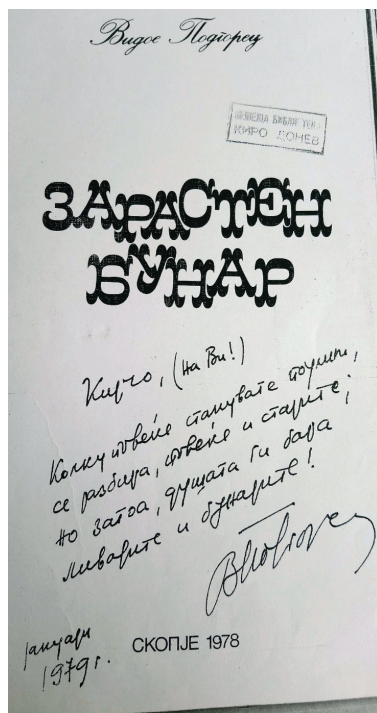 Видое Подгорец
ЛИЧНА БИБЛИОТЕКА
КИРО ДОНЕВ
ЗАРАСТЕН
БУНАР
Кирчо, (на Ви!)
Колку повеќе станувате поумни,
се разбира, повеќе и старите;
но затоа, душата ги бара
ливадите и бунарите!
ВПодгорец
СКОПЈЕ 1978
јануари
1979 г.